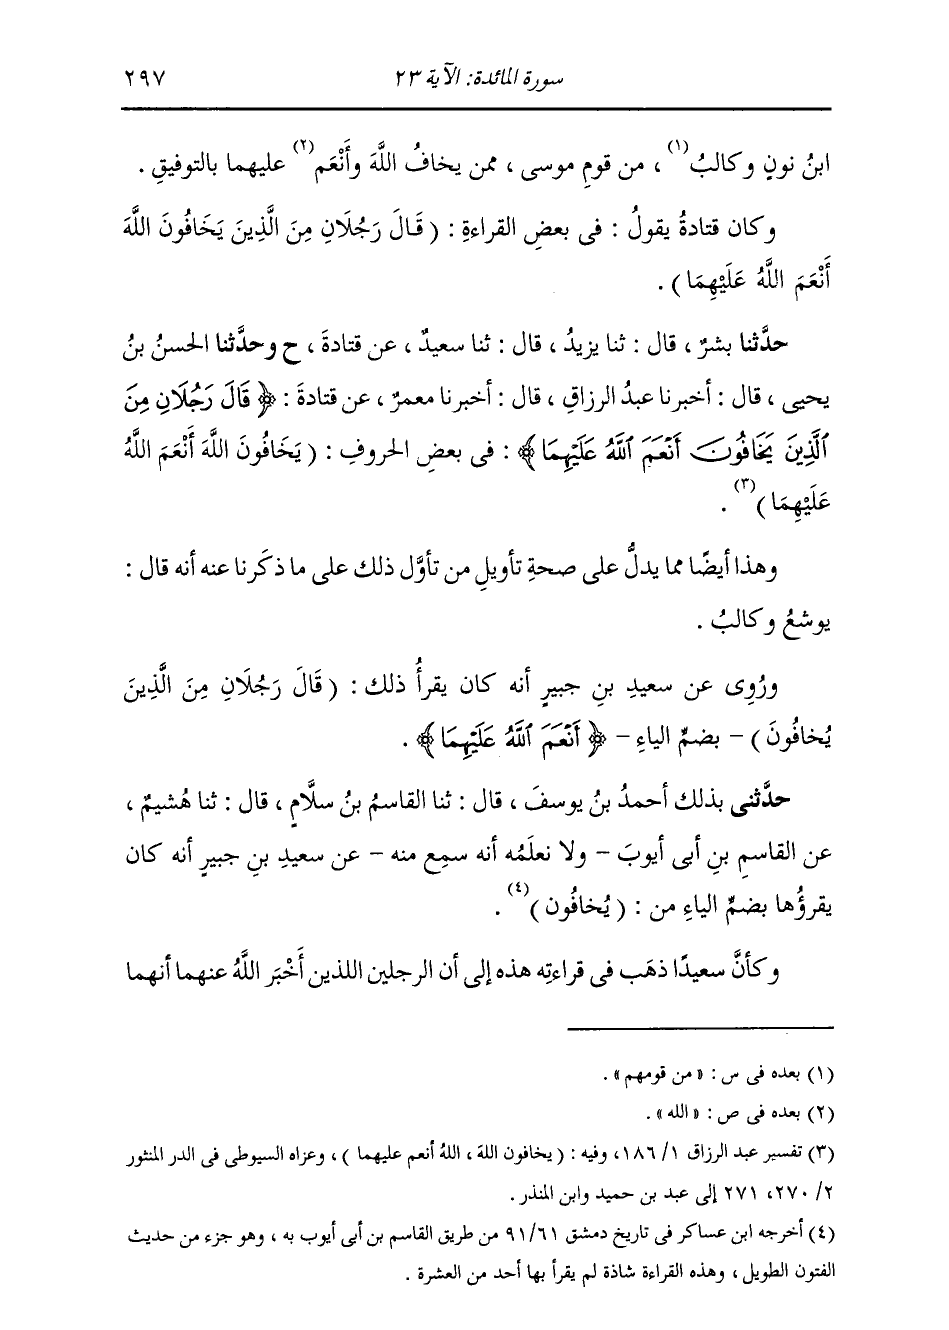 سورة المائدة: الآية ٢٣ ٢٩٧
ابنُ نونٍ وكالبُ(١)، من قومِ موسى، ممن يخافُ اللَّهَ وأَنْعَم(٢) عليهما بالتوفيقِ.
وكان قتادةُ يقولُ: فى بعضِ القراءةِ: (قَالَ رَجُلَانِ مِنَ الَّذِينَ يَخَافُونَ اللَّهَ
أَنْعَمَ اللَّهُ عَلَيْهِمَا).
حدَّثنا بشرٌ، قال: ثنا يزيدُ، قال: ثنا سعيدٌ، عن قتادةَ، ح وحدَّثنا الحسنُ بنُ
يحيى، قال: أخبرنا عبدُ الرزاقِ، قال: أخبرنا معمرٌ، عن قتادةَ: ﴿قَالَ رَجُلَانِ مِنَ
ٱلَّذِينَ يَخَافُونَ أَنْعَمَ ٱللَّهُ عَلَيْهِمَا﴾: فى بعضِ الحروفِ: (يَخَافُونَ اللَّهَ أَنْعَمَ اللَّهُ
عَلَيْهِمَا)(٣).
وهذا أيضًا مما يدلُّ على صحةِ تأويلِ من تأوَّل ذلك على ما ذكَرنا عنه أنه قال:
يوشعُ وكالبُ.
ورُوِى عن سعيدِ بنِ جبيرٍ أنه كان يقرأُ ذلك: (قَالَ رَجُلَانِ مِنَ الَّذِينَ
يُخافُونَ) - بضمِّ الياءِ - ﴿أَنْعَمَ ٱللَّهُ عَلَيْهِمَا﴾.
حدَّثنى بذلك أحمدُ بنُ يوسفَ، قال: ثنا القاسمُ بنُ سلَّامٍ، قال: ثنا هُشيمٌ،
عن القاسمِ بنِ أبى أيوبَ - ولا نعلَمُه أنه سمِع منه - عن سعيدِ بنِ جبيرٍ أنه كان
يقرؤُها بضمِّ الياءِ من: (يُخافُون)(٤).
وكأنَّ سعيدًا ذهَب فى قراءتِه هذه إلى أن الرجلين اللذين أَخْبَر اللَّهُ عنهما أنهما
(١) بعده فى س: «من قومهم».
(٢) بعده فى ص: «الله».
(٣) تفسير عبد الرزاق ١/ ١٨٦، وفيه: (يخافون اللهَ، اللهُ أنعم عليهما)، وعزاه السيوطى فى الدر المنثور
٢/ ٢٧٠، ٢٧١ إلى عبد بن حميد وابن المنذر.
(٤) أخرجه ابن عساكر فى تاريخ دمشق ٩١/٦١ من طريق القاسم بن أبى أيوب به، وهو جزء من حديث
الفتون الطويل، وهذه القراءة شاذة لم يقرأ بها أحد من العشرة.